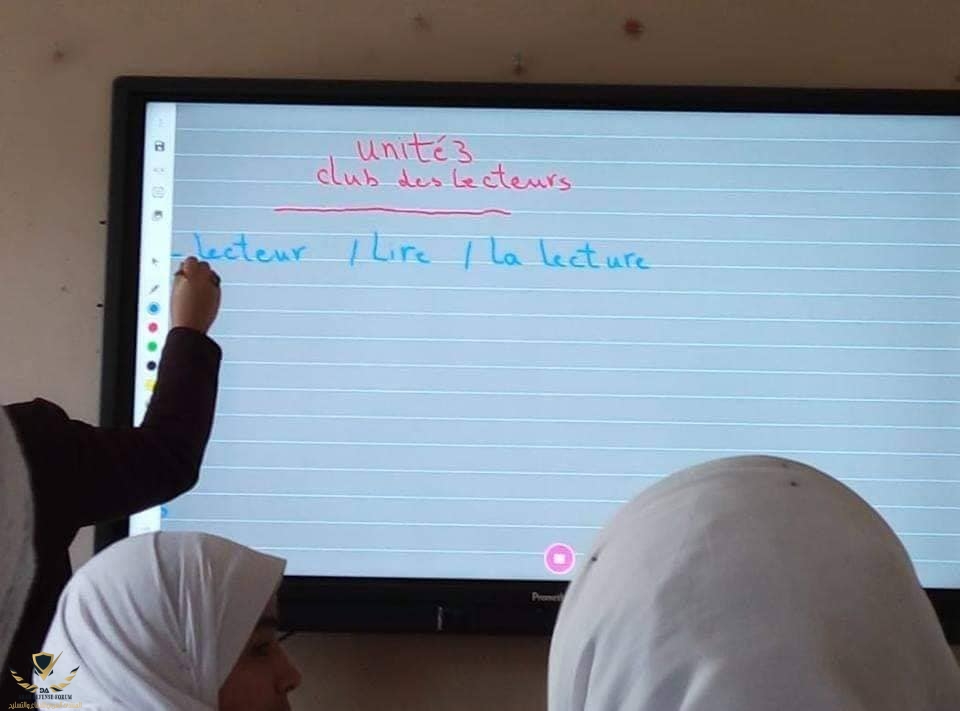 unité 3
club des lecteurs
- lecteur / Lire / la lecture
DA
DEFENSE FORUM